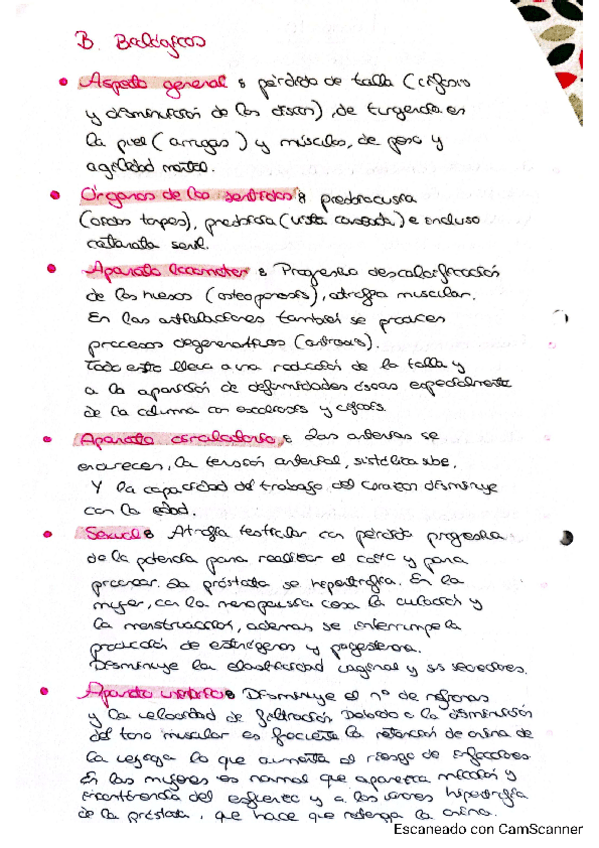 B. Biológicos
• Aspecto general: pérdida de talla (cifosis
y disminución de los discos), de turgencia en
la piel (arrugas) y músculos, de peso y
agilidad mental.
• Órganos de los sentidos: presbiacusia
(oidos tapes), presbicia (vista cansada) e incluso
catarata senil.
• Aparato locomotor: Progresiva descalcificación
de los huesos (osteoporosis), atrofia muscular.
En las articulaciones también se producen
procesos degenerativos (artrosis).
Todo esto lleva a una reducción de la talla y
a la aparición de deformidades óseas especialmente
de la columna con escoliosis y cifosis
• Aparato circulatorio: Las arterias se
endurecen, la tensión arterial, sistólica sube.
Y la capacidad del trabajo del corazón disminuye
con la edad.
• Sexual: Atrofia testicular con pérdida progresiva
de la potencia para realizar el coito y para
procrear. La próstata se hipertrofia. En la
mujer, con la menopausia cesa la ovulación y
la menstruación, además se interrumpe la
producción de estrógenos y progesterona.
Disminuye la elasticidad vaginal y sus secreciones.
• Aparato urinario: Disminuye el nº de nefronas
y la velocidad de filtración Debido a la disminución
del tono muscular es frecuente la retención de orina de
la vejiga lo que aumenta el riesgo de infecciones
En las mujeres es normal que aparezca micción y
incontinencia del esfuerzo y a los varones hipertrofia
de la próstata, que hace que retenga la orina.
Escaneado con CamScanner